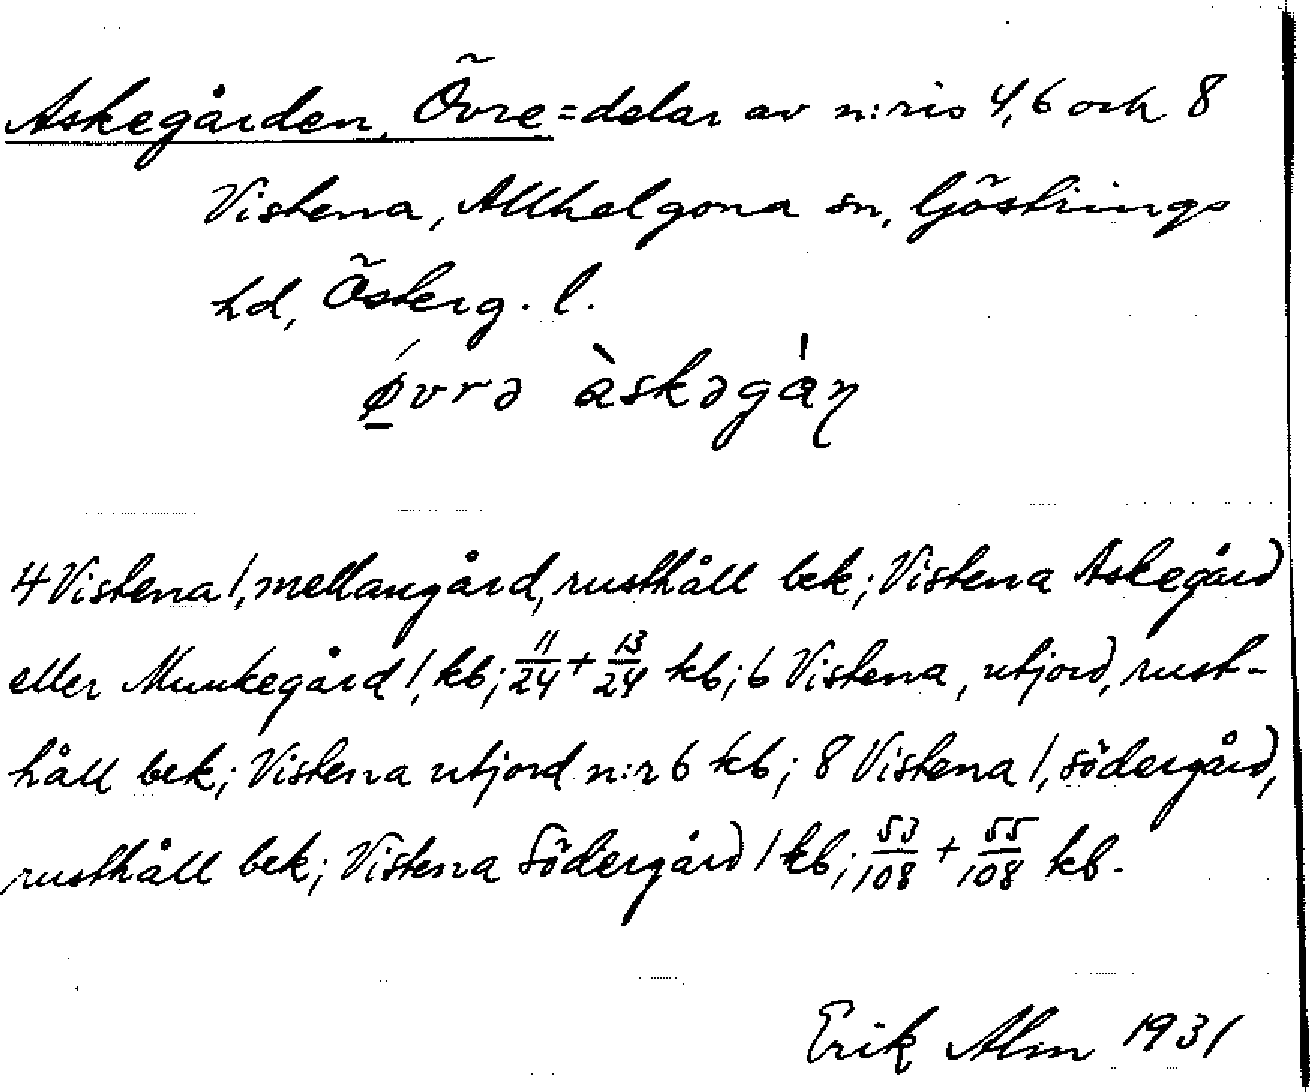 Askegården, Övre = delar av n:ris 4, 6 och 8
Vistena, Allhelgona sn, Göstrings
hd, Österg. l.
ǿvrə àskəga̍ɳ
4 Vistena 1, mellangård, rusthåll bek; Vistena Askegård
eller Munkegård 1, kb; 11/24 + 13/24 kb; 6 Vistena, utjord, rust-
håll bek; Vistena utjord n:r 6 kb; 8 Vistena 1, södergård,
rusthåll bek; Vistena Södergård 1 kb; 53/108 + 55/108 kb.
Erik Alm 1931